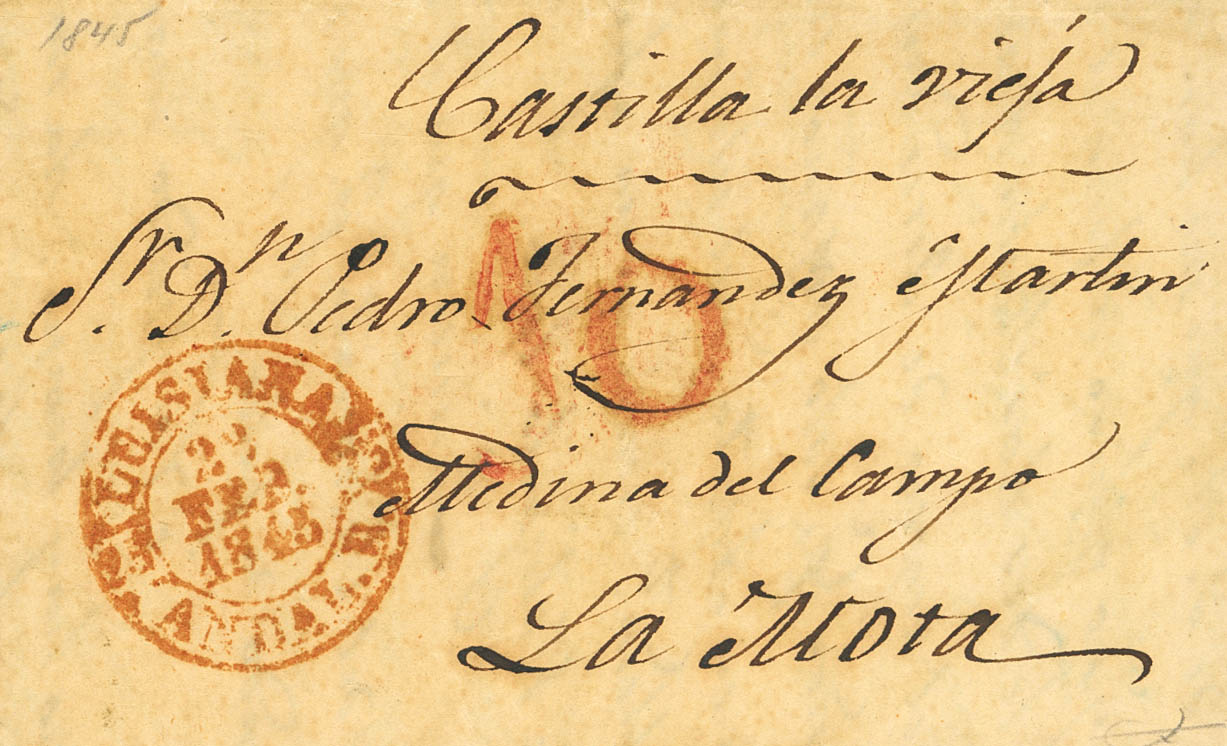 1845
Castilla la vieja
10
Sr. Dn. Pedro Fernandez Martin
LUISIANA
FEB.
1845
ANDAL. B.
Medina del Campo
La Mota